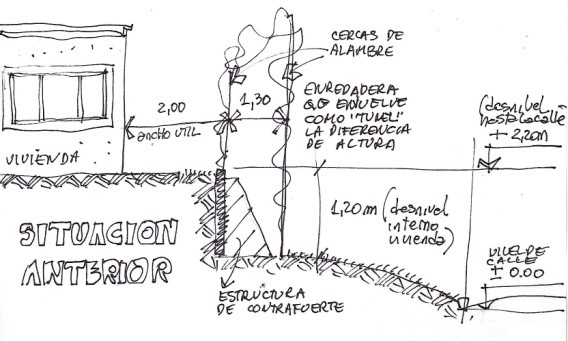 CERCAS DE
ALAMBRE
2,00
ancho UTIL
1,30
ENREDADERA
QUE ENVUELVE
COMO "TUNEL"
LA DIFERENCIA
DE ALTURA
(desnivel
hasta calle)
+ 2,20m
VIVIENDA
1,20m (desnivel
interno
vivienda)
SITUACION
ANTERIOR
NIVEL DE
CALLE
± 0.00
ESTRUCTURA
DE CONTRAFUERTE